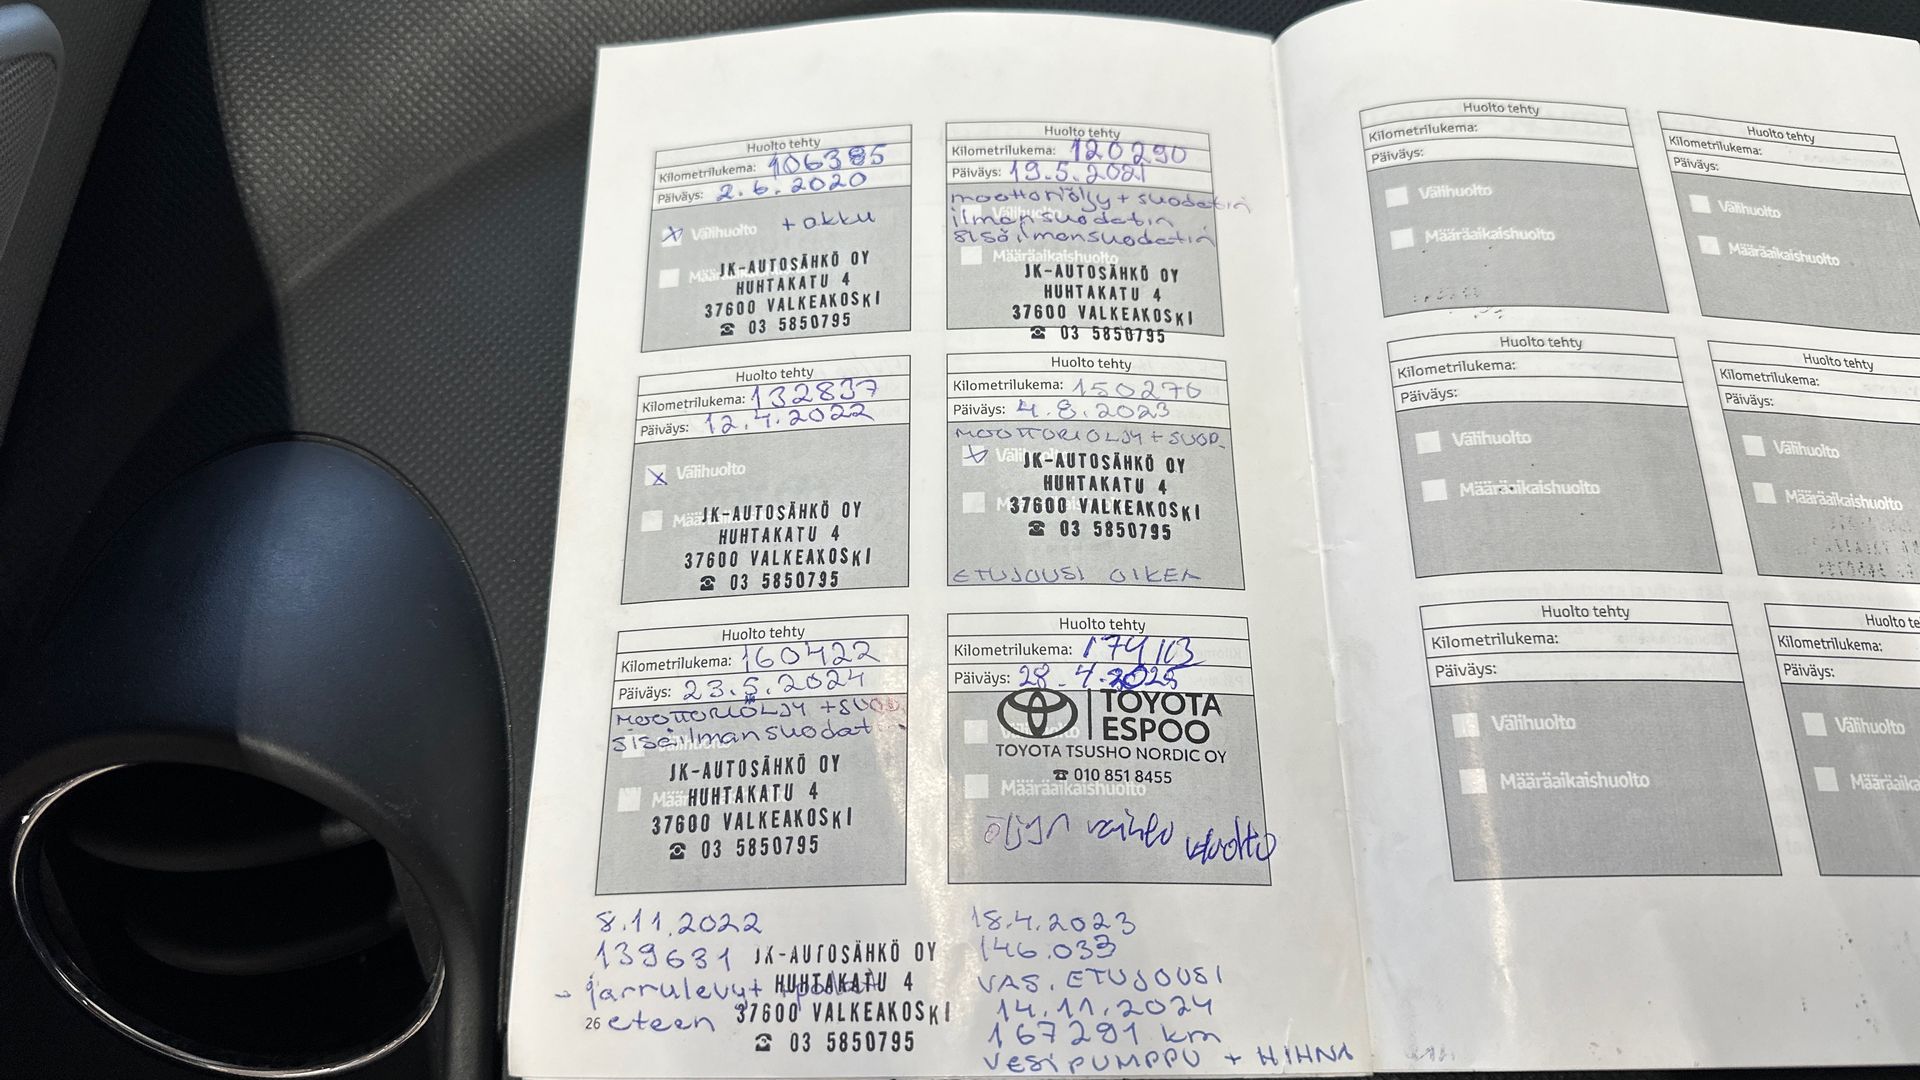 Huolto tehty
Kilometrilukema: 106385
Päiväys: 2.6.2020
x Välihuolto + akku
JK-AUTOSÄHKÖ OY
HUHTAKATU 4
37600 VALKEAKOSKI
☎ 03 5850795
Huolto tehty
Kilometrilukema: 120290
Päiväys: 19.5.2021
moottoriöljy + suodatin
ilmansuodatin
sisäilmansuodatin
Määräaikaishuolto
JK-AUTOSÄHKÖ OY
HUHTAKATU 4
37600 VALKEAKOSKI
☎ 03 5850795
Huolto tehty
Kilometrilukema: 132837
Päiväys: 12.4.2022
x Välihuolto
JK-AUTOSÄHKÖ OY
HUHTAKATU 4
37600 VALKEAKOSKI
☎ 03 5850795
Huolto tehty
Kilometrilukema: 150270
Päiväys: 4.8.2023
MOOTTORIÖLJY + SUOD.
JK-AUTOSÄHKÖ OY
HUHTAKATU 4
37600 VALKEAKOSKI
☎ 03 5850795
ETUJOUSI OIKEA
Huolto tehty
Kilometrilukema: 160422
Päiväys: 23.5.2024
MOOTTORIÖLJY + SUOD.
sisäilmansuodat
JK-AUTOSÄHKÖ OY
HUHTAKATU 4
37600 VALKEAKOSKI
☎ 03 5850795
Huolto tehty
Kilometrilukema: 174113
Päiväys: 28.4.2025
TOYOTA
ESPOO
TOYOTA TSUSHO NORDIC OY
☎ 010 851 8455
Määräaikaishuolto
öljyn vaihto huolto
8.11.2022
139631 JK-AUTOSÄHKÖ OY
jarrulevyt HUHTAKATU 4
eteen 37600 VALKEAKOSKI
☎ 03 5850795
26
18.4.2023
146.033
VAS. ETUJOUSI
14.11.2024
167291 km
VESIPUMPPU + HIHNA
Huolto tehty
Kilometrilukema:
Päiväys:
Välihuolto
Määräaikaishuolto
Huolto tehty
Kilometrilukema:
Päiväys:
Välihuolto
Määräaikaishuolto
Huolto tehty
Kilometrilukema:
Päiväys:
Välihuolto
Määräaikaishuolto
Huolto tehty
Kilometrilukema:
Päiväys:
Välihuolto
Määräaikaishuolto
Huolto tehty
Kilometrilukema:
Päiväys:
Välihuolto
Määräaikaishuolto
Huolto te
Kilometrilukema:
Päiväys:
Välihuolto
Määräaika